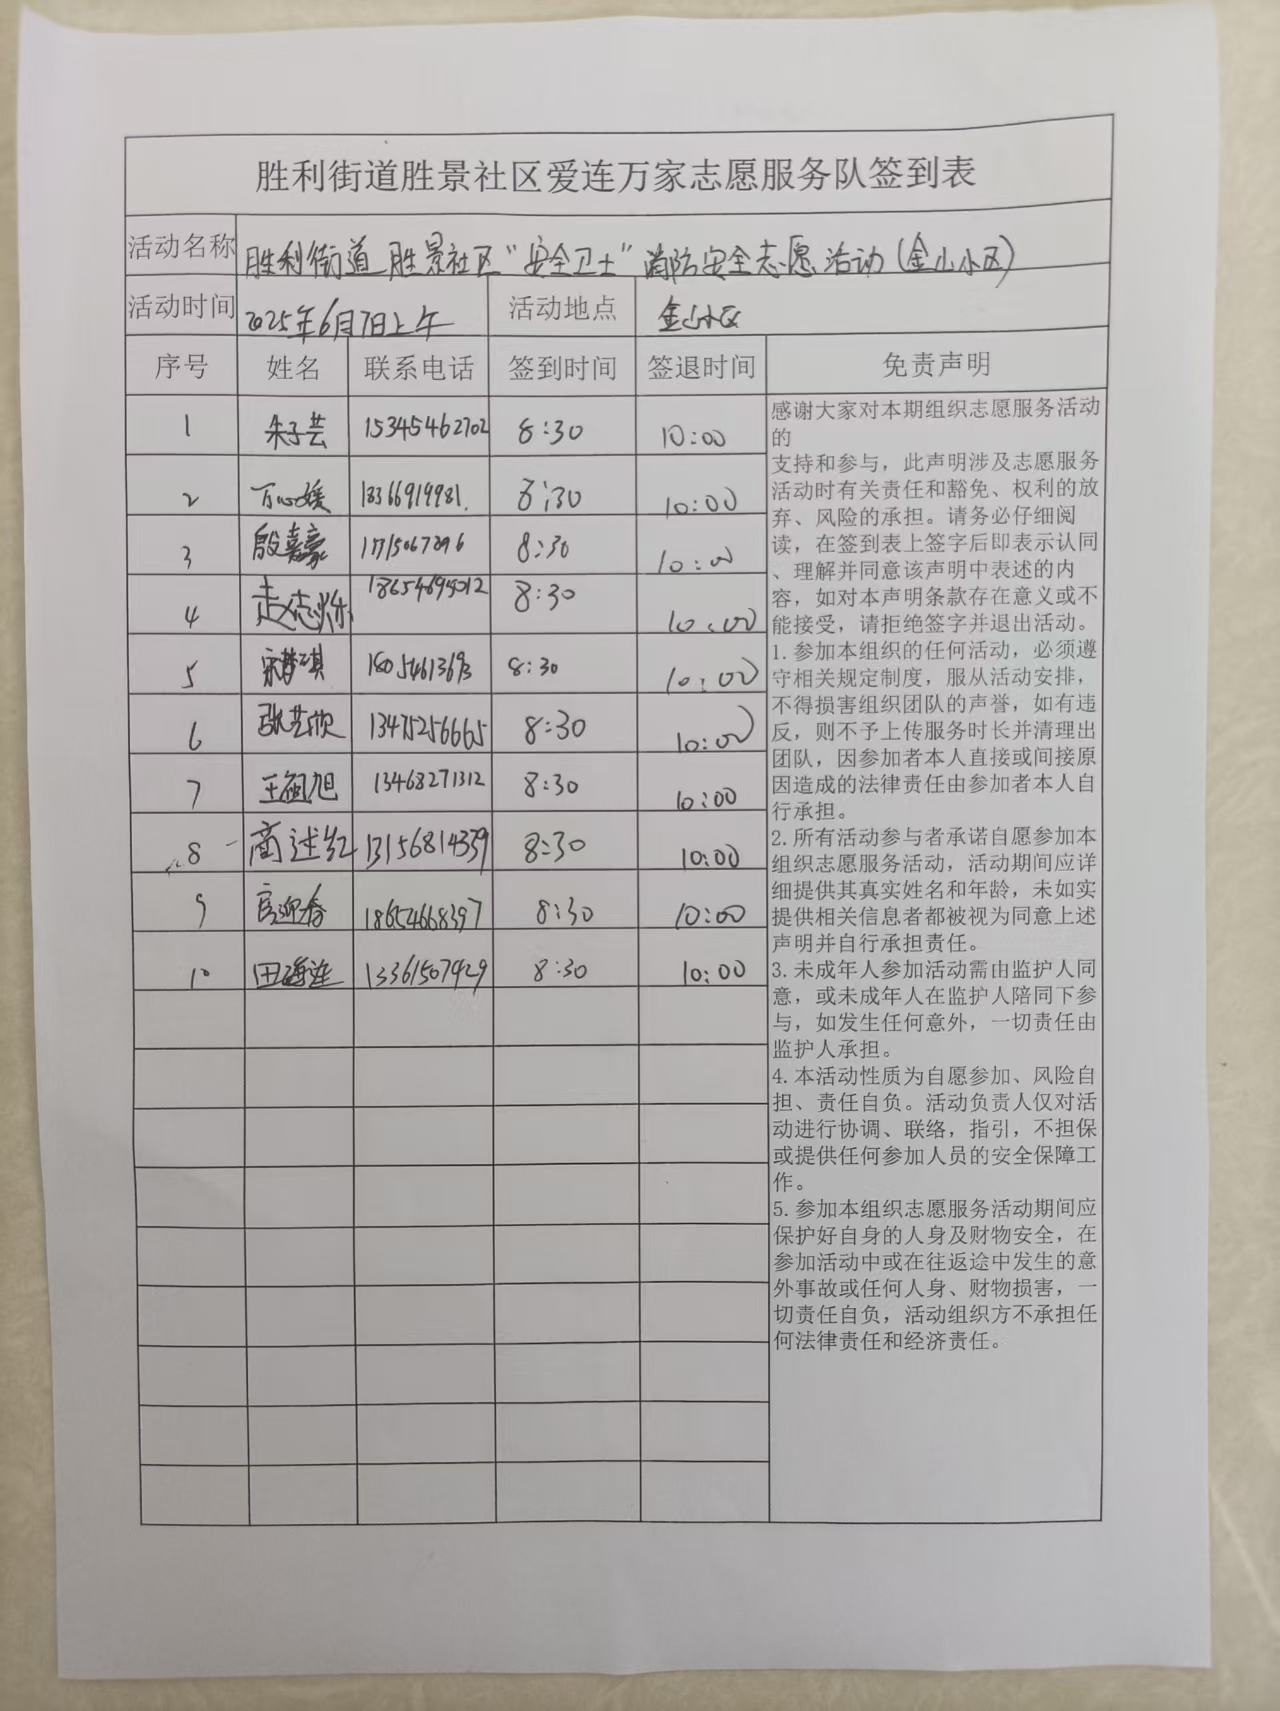 胜利街道胜景社区爱连万家志愿服务队签到表
活动名称 胜利街道胜景社区“安全卫士”消防安全志愿活动(金山小区)
活动时间 2025年6月7日上午 活动地点 金山小区
序号 姓名 联系电话 签到时间 签退时间 免责声明
1 朱子芸 15345462702 8:30 10:00
2 万心媛 18366919981. 8:30 10:00
3 殷嘉豪 8:30 10:00
4 赵志烁 18654694012 8:30 10:00
5 宋梦琪 8:30 10:00
6 张艺欣 13475256665 8:30 10:00
7 王祖旭 13468271312 8:30 10:00
8 商述红 13156814339 8:30 10:00
9 宫迎春 18654668397 8:30 10:00
10 田海莲 13361507929 8:30 10:00
感谢大家对本期组织志愿服务活动
的
支持和参与，此声明涉及志愿服务
活动时有关责任和豁免、权利的放
弃、风险的承担。请务必仔细阅
读，在签到表上签字后即表示认同
、理解并同意该声明中表述的内
容，如对本声明条款存在意义或不
能接受，请拒绝签字并退出活动。
1.参加本组织的任何活动，必须遵
守相关规定制度，服从活动安排，
不得损害组织团队的声誉，如有违
反，则不予上传服务时长并清理出
团队，因参加者本人直接或间接原
因造成的法律责任由参加者本人自
行承担。
2.所有活动参与者承诺自愿参加本
组织志愿服务活动，活动期间应详
细提供其真实姓名和年龄，未如实
提供相关信息者都被视为同意上述
声明并自行承担责任。
3.未成年人参加活动需由监护人同
意，或未成年人在监护人陪同下参
与，如发生任何意外，一切责任由
监护人承担。
4.本活动性质为自愿参加、风险自
担、责任自负。活动负责人仅对活
动进行协调、联络，指引，不担保
或提供任何参加人员的安全保障工
作。
5.参加本组织志愿服务活动期间应
保护好自身的人身及财物安全，在
参加活动中或在往返途中发生的意
外事故或任何人身、财物损害，一
切责任自负，活动组织方不承担任
何法律责任和经济责任。